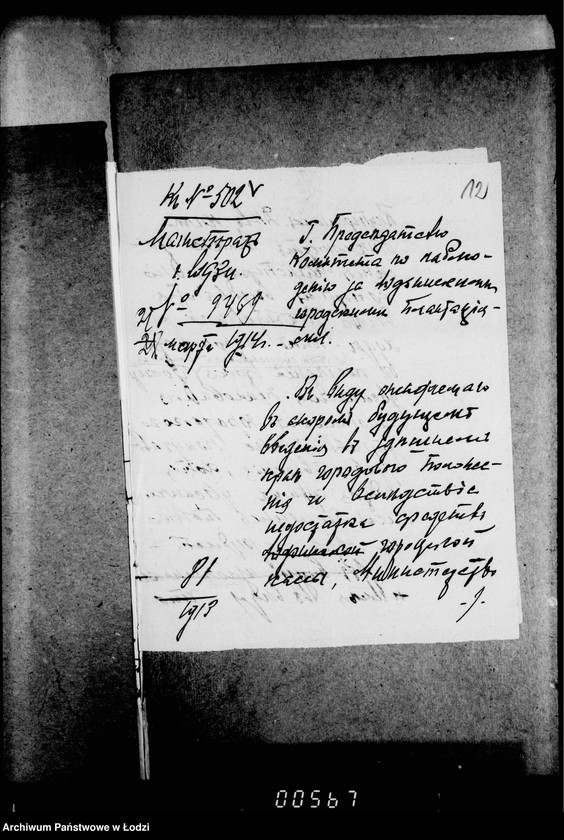 Къ № 502
12
Магистратъ
г. Лодзи.
№ 9459
27
марта 1914 г.
Г. Предсѣдателю
Комитета по наблю-
денію за Лодзинскими
городскими Плантація-
ми.
Въ виду ожидаемаго
въ скоромъ будущемъ
введенія въ здѣшнемъ
краѣ городового Положе-
нія и вслѣдствіе
недостатка средствъ
Лодзинской городской
кассы, Министерство
1913
00567
Archiwum Państwowe w Łodzi